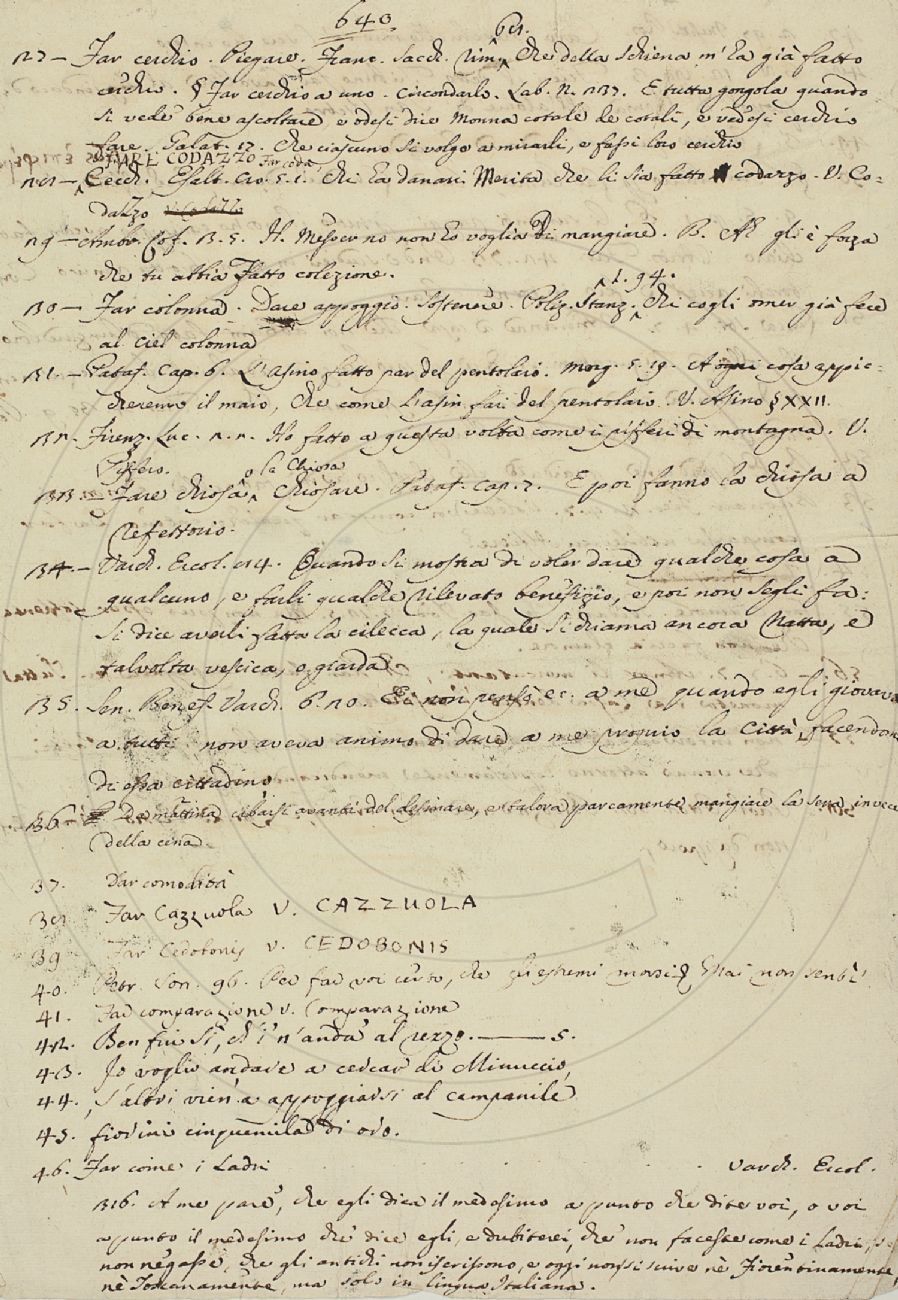 640
127 — Far cerchio. Piegare. Franc. Sacch. rim. 61. Che della schiena m' ha già fatto
cerchio. § Far cerchio a uno. Circondarlo. Lab. n. 137. E tutta gongola quando
si vede bene ascoltare e odesi dire monna cotale de' cotali, e vedesi cerchio
fare. Galat. 17. Che ciascuno si volge a mirarli, e fassi loro cerchio
FARE CODAZZO Far coda
128 — Cecch. Esalt. Cro. 5. 1. Chi ha danari merita che li sia fatto codazzo. V. Co=
dazzo
129 — Ambr. Cof. 3. 5. H. Messer no non ho voglia di mangiare. B. Ah gli è forza
che tu abbia fatto colezione.
130 — Far colonna. Dare appoggio. Sostenere. Poliz. Stanz. 1. 94. Chi cogli omer già fece
al ciel colonna
131. — Pataf. Cap. 6. L'asino fatto par del pentolaio. Morg. 5. 19. A ogni cosa appic=
cheremo il maio, Che come l'asin fai del pentolaio. V. Asino § XXII.
132. Firenz. Luc. 2. 2. Ho fatto a questa volta come i pifferi di montagna. V.
Piffero.
133 — Fare chiosa, o la Chiosa Chiosare. Pataf. cap. 7. E poi fanno la chiosa a
refettorio.
134. — Varch. Ercol. 114. Quando si mostra di voler dare qualche cosa a
qualcuno, e farli qualche rilevato benefizio, e poi non segli fa:
si dice averli fatta la cilecca, la quale si chiama ancora Natta, e
talvolta vescica, o giarda.
135. Sen. Benef. Varch. 6. 20. Ei non pensò ec. a me quando egli giovava
a tutti: non aveva animo di dare a me proprio la Città, facendomi
di essa cittadino
136 — La mattina cibarsi avanti del desinare, e talora parcamente mangiare la sera in vece
della cena.
37. Dar comodità
38 Far Cazzuola V. CAZZUOLA
39 Far Cedobonis V. CEDOBONIS
40. Petr. Son. 96. Per far voi certo, che gli estremi morsi
41. Far comparazione v. Comparazione
42. Ben fui sì, ch' i' n' anda' al rezzo. —— 5.
43. Io voglio andare a cercar di Minuccio,
44. S'altri vien a appoggiarsi al campanile
45. fiorini cinquemila di oro.
46. Far come i Ladri . . . Varch. Ercol.
316. A me pare, che egli dica il medesimo a punto che dite voi, o voi
apunto il medesimo che dice egli, e dubiterei, che non faceste come i Ladri,
non negasse, che gli antichi non iscrissono, e oggi non si scrive nè Fiorentinamente,
nè Toscanamente, ma solo in lingua Italiana.